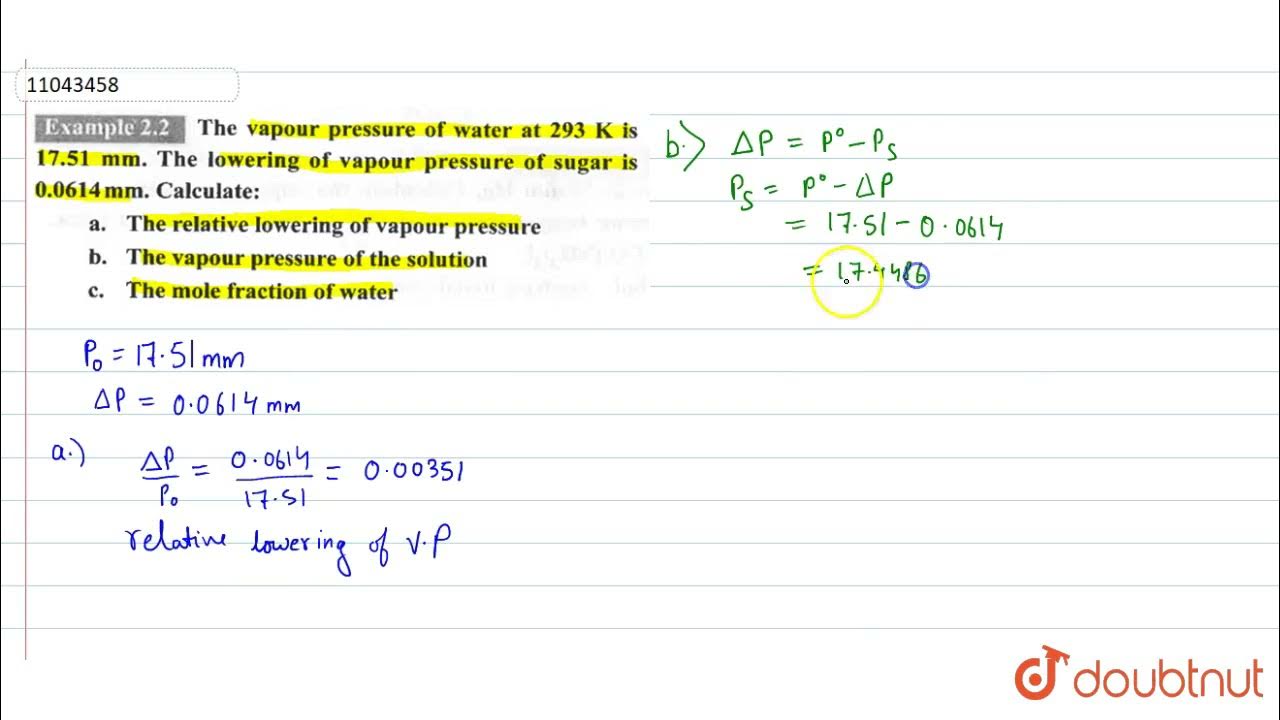 11043458
Example 2.2 The vapour pressure of water at 293 K is
17.51 mm. The lowering of vapour pressure of sugar is
0.0614 mm. Calculate:
a. The relative lowering of vapour pressure
b. The vapour pressure of the solution
c. The mole fraction of water
P₀ = 17.51 mm
ΔP = 0.0614 mm
a.) ΔP/P₀ = 0.0614/17.51 = 0.00351
relative lowering of V.P
b.) ΔP = P° − Pₛ
Pₛ = P° − ΔP
= 17.51 − 0.0614
= 17.4486
doubtnut